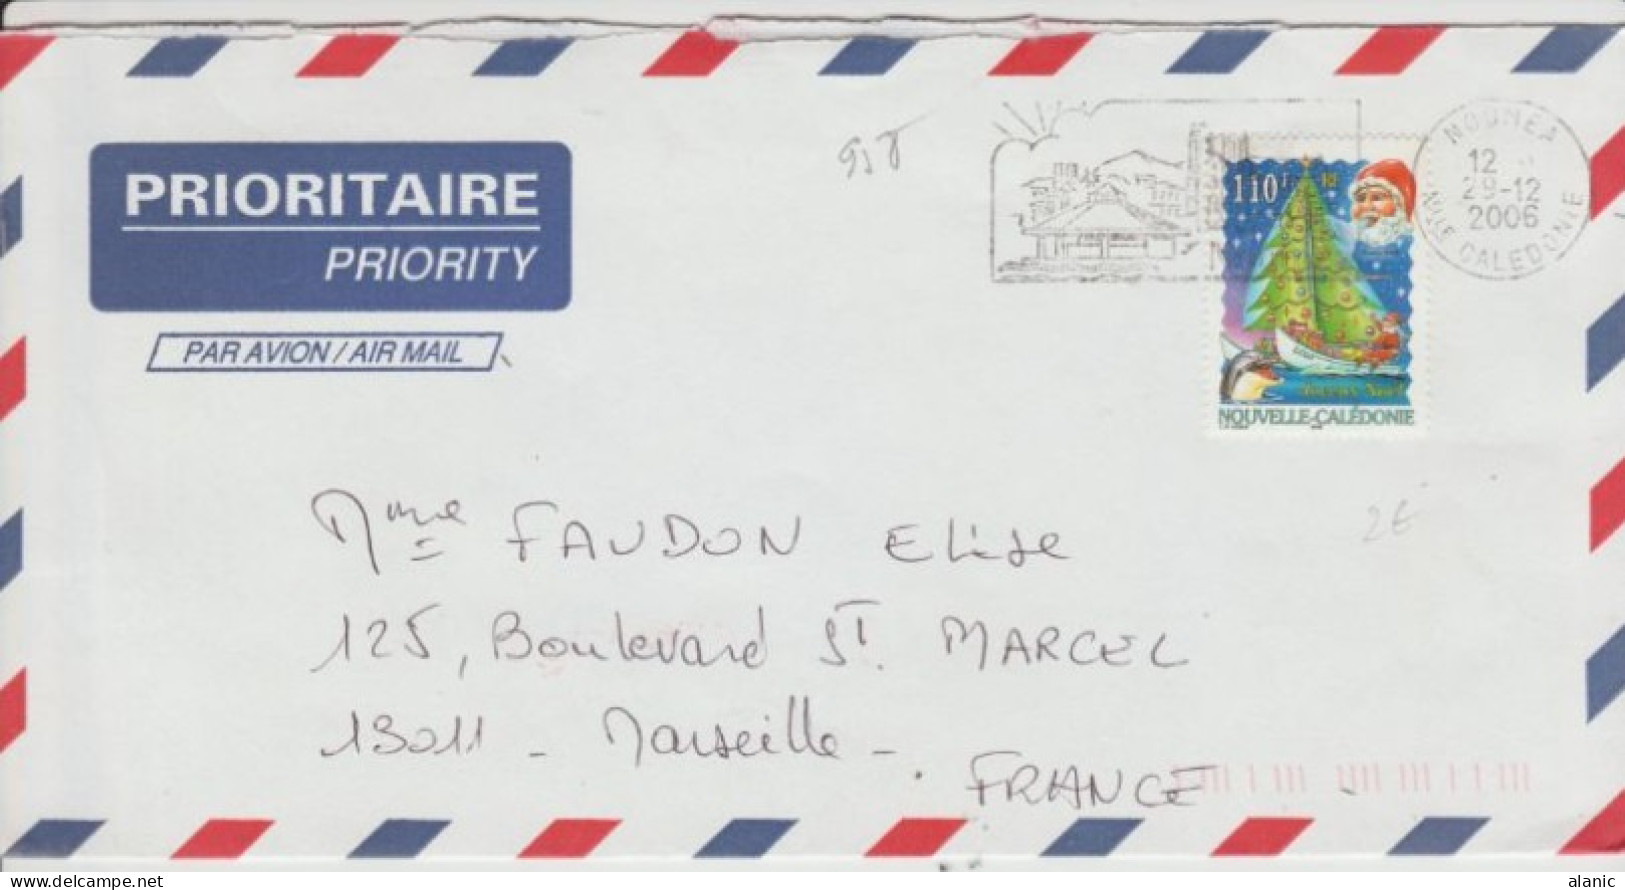 PRIORITAIRE
PRIORITY
PAR AVION / AIR MAIL
NOUMEA
12
29-12
2006
Nlle CALEDONIE
110F RF
Joyeux Noël
NOUVELLE-CALÉDONIE
2€
Mme FAUDON Elise
125, Boulevard ST. MARCEL
13011 - Marseille -
FRANCE
www.delcampe.net
alanic